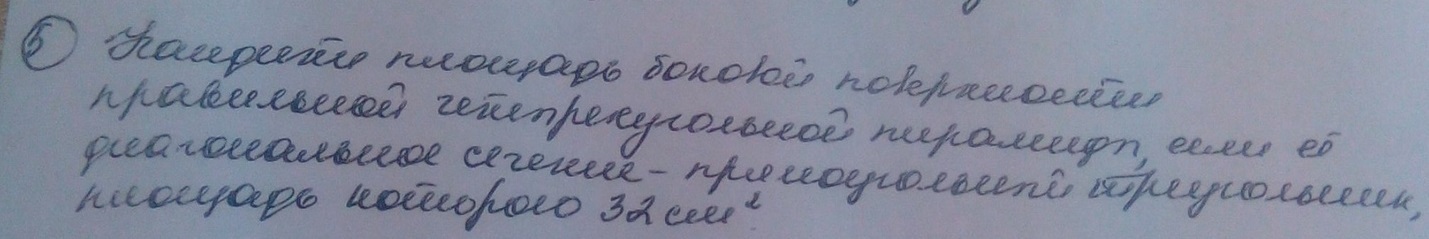 5 Найдите площадь боковой поверхности
правильной четырехугольной пирамиды, если её
диагональное сечение - прямоугольный треугольник,
площадь которого 32 см²